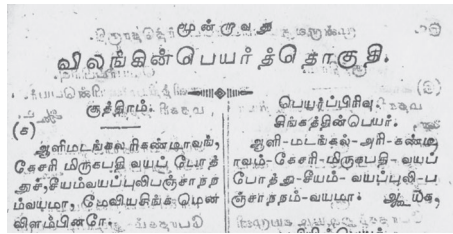 மூன்றாவது
விலங்கின்பெயர்த்தொகுதி.
சூத்திரம்.
(க)
ஆளிமடங்கலரிகண்டீரவங்,
கேசரி மிருகபதி வயப் போத்
துச்,சீயம்வயப்புலிபஞ்சாநந
ம்வயமா, மேவியசிங்க மென
விளம்பினரே.
பெயர்ப்பிரிவு.
சிங்கத்தின்பெயர்.
ஆளி-மடங்கல்-அரி-கண்டீ
ரவம்-கேசரி-மிருகபதி-வயப்
போத்து-சீயம்-வயப்புலி-ப
ஞ்சாநநம்-வயமா.